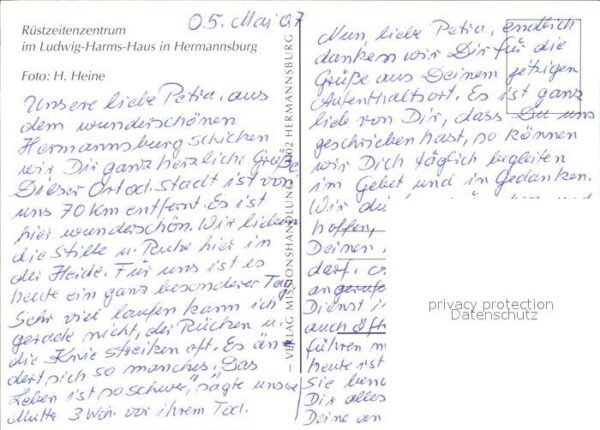 Rüstzeitenzentrum
im Ludwig-Harms-Haus in Hermannsburg
Foto: H. Heine
05. Mai 07
Unsere liebe Petra, aus
dem wunderschönen
Hermannsburg schicken
wir Dir ganz herzliche Grüße
Dieser Ort od. Stadt ist von
uns 70 km entfernt. Es ist
hier wunderschön. Wir lieben
die Stille u. Ruhe hier in
der Heide. Für uns ist es
heute ein ganz besonderer Tag.
Sehr viel laufen kann ich
gerade nicht, der Rücken u.
die Knie streiken oft. Es än-
dert sich so manches. "Das
Leben ist so schwer", sagte unsere
Mutti 3 Wch. vor ihrem Tod.
– VERLAG MISSIONSHANDLUNG HERMANNSBURG
Nun, liebe Petra, endlich
danken wir Dir für die
Grüße aus Deinem jetzigen
Aufenthaltsort. Es ist ganz
lieb von Dir, dass Du uns
geschrieben hast, so können
wir Dich täglich begleiten
im Gebet und in Gedanken.
Wir
hoffen,
Deinen
darf.
Dienst
auch öft
führen
heute ist
Sie
Dir alles
Deine
privacy protection
Datenschutz